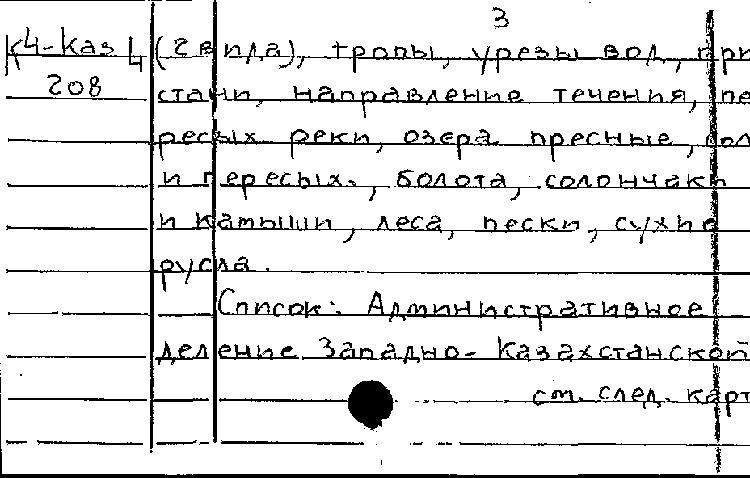 3
К4-Каз4 (2 вида), тропы, урезы вод, при
208 стани, направление течения, пе
ресых реки, озера пресные, сол
и пересых., болота, солончаки
и камыши, леса, пески, сухие
русла.
Список: Административное
деление Западно-Казахстанской
см. след. карт